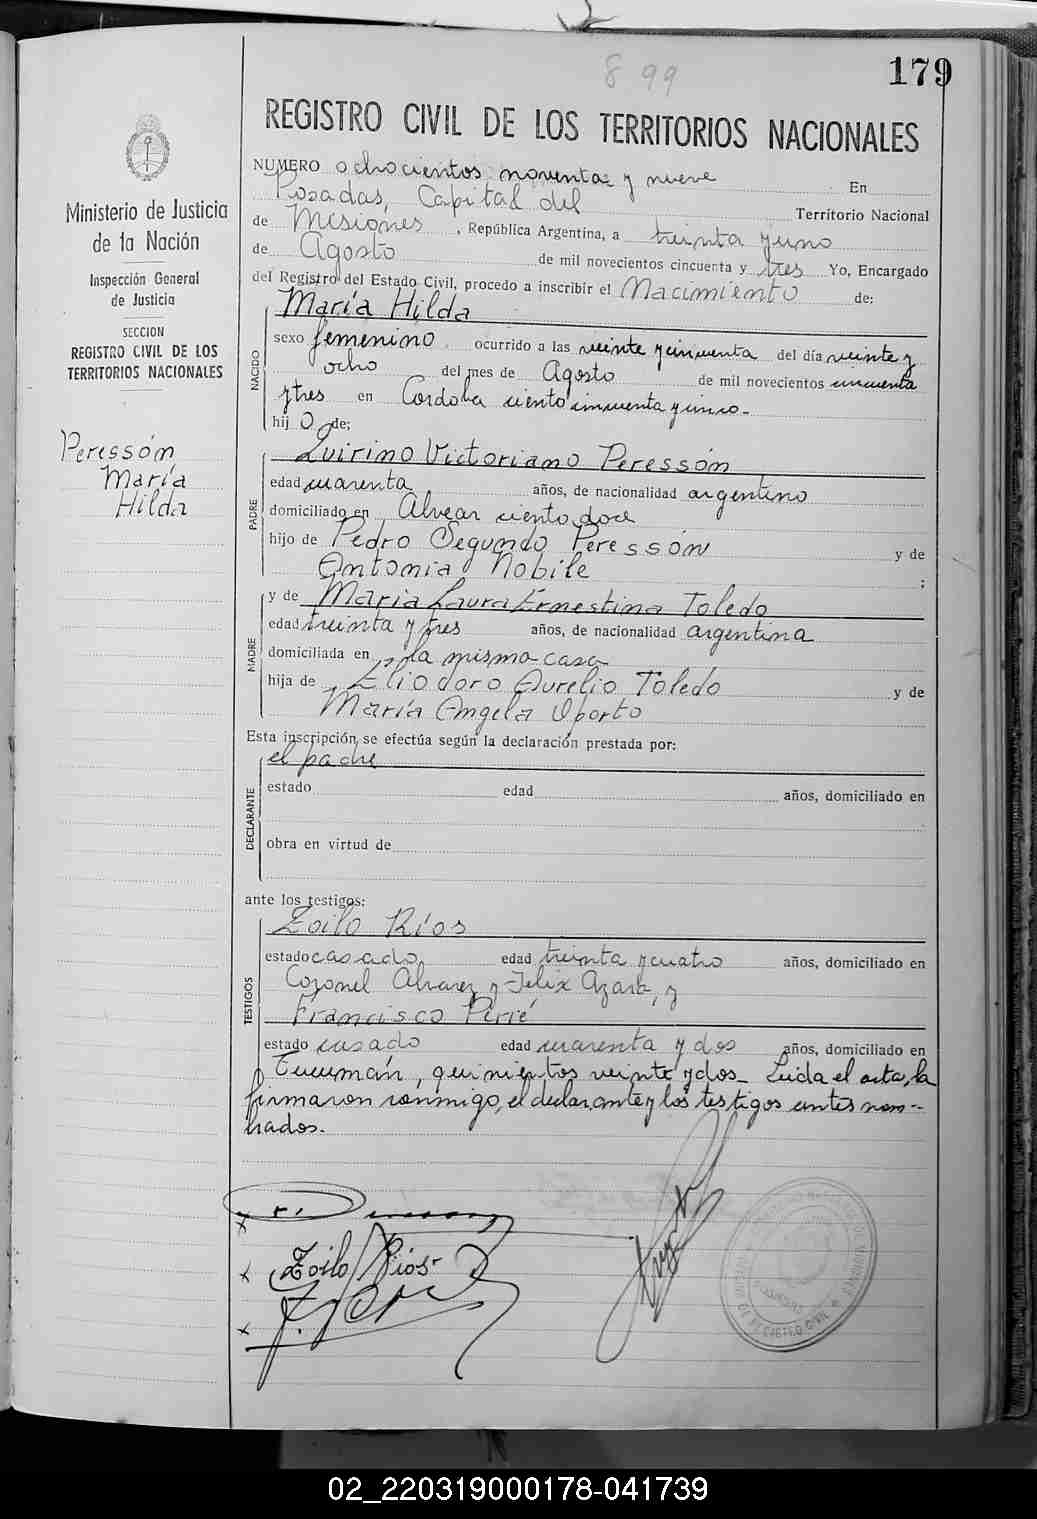 8 99
179
REGISTRO CIVIL DE LOS TERRITORIOS NACIONALES
Ministerio de Justicia
de la Nación
Inspección General
de Justicia
SECCION
REGISTRO CIVIL DE LOS
TERRITORIOS NACIONALES
Peressón
María
Hilda
NUMERO ochocientos noventa y nueve En
Posadas, Capital del Territorio Nacional
de Misiones, República Argentina, a treinta y uno
de Agosto de mil novecientos cincuenta y tres Yo, Encargado
del Registro del Estado Civil, procedo a inscribir el Nacimiento de:
NACIDO
María Hilda
sexo femenino ocurrido a las veinte y cincuenta del día veinte y
ocho del mes de Agosto de mil novecientos cincuenta
y tres en Cordoba ciento cincuenta y cinco-
hij a de;
PADRE
Quirino Victoriano Peressón
edad cuarenta años, de nacionalidad argentino
domiciliado en Alvear ciento doce
hijo de Pedro Segundo Peressón y de
Antonia Nobile ;
MADRE
y de María Laura Ernestina Toledo
edad treinta y tres años, de nacionalidad argentina
domiciliada en la misma casa
hija de Eliodoro Aurelio Toledo y de
María Angela Oporto
Esta inscripción se efectúa según la declaración prestada por:
DECLARANTE
el padre
estado edad años, domiciliado en
obra en virtud de
ante los testigos:
TESTIGOS
Zoilo Ríos
estado casado edad treinta y cuatro años, domiciliado en
Coronel Alvarez y Felix Azara, y
Francisco Perié
estado casado edad cuarenta y dos años, domiciliado en
Tucumán, quinientos veinte y dos- Leida el acta, la
firmaron conmigo, el declarante y los testigos antes nom-
brados.
Zoilo Ríos
REGISTRO CIVIL
02_220319000178-041739